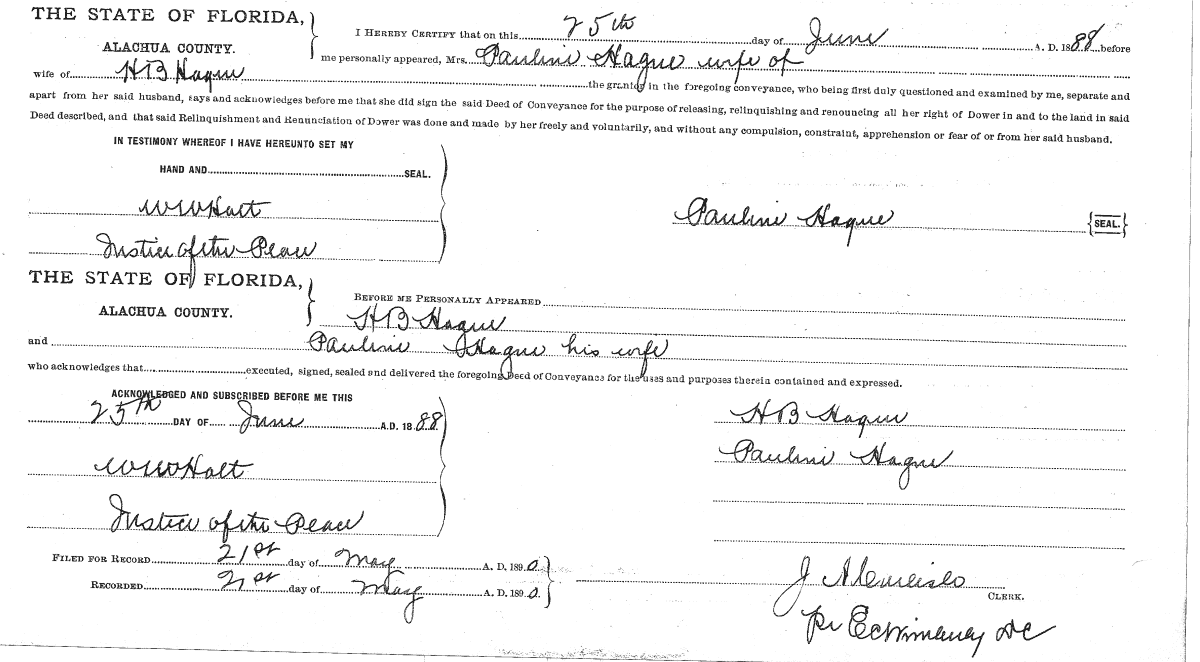 THE STATE OF FLORIDA,
ALACHUA COUNTY.
I HEREBY CERTIFY that on this 25th day of June A. D. 1888 before
me personally appeared, Mrs. Pauline Hague wife of
wife of H B Hague the grantor in the foregoing conveyance, who being first duly questioned and examined by me, separate and
apart from her said husband, says and acknowledges before me that she did sign the said Deed of Conveyance for the purpose of releasing, relinquishing and renouncing all her right of Dower in and to the land in said
Deed described, and that said Relinquishment and Renunciation of Dower was done and made by her freely and voluntarily, and without any compulsion, constraint, apprehension or fear of or from her said husband.
IN TESTIMONY WHEREOF I HAVE HEREUNTO SET MY
HAND AND SEAL.
W W Holt
Pauline Hague {SEAL.}
Justice of the Peace
THE STATE OF FLORIDA,
ALACHUA COUNTY.
BEFORE ME PERSONALLY APPEARED
H B Hague
and Pauline Hague his wife
who acknowledges that executed, signed, sealed and delivered the foregoing Deed of Conveyance for the uses and purposes therein contained and expressed.
ACKNOWLEDGED AND SUBSCRIBED BEFORE ME THIS
25th DAY OF June A.D. 1888
H B Hague
Pauline Hague
W W Holt
Justice of the Peace
FILED FOR RECORD 21st day of May A. D. 1890.
RECORDED 21st day of May A. D. 1890.
J
CLERK.
pr DC